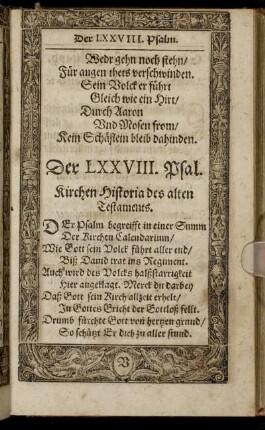 Der LXXVIII. Psalm.
Wedr gehn noch stehn/
Für augen thets verschwinden.
Sein Volck er führt
Gleich wie ein Hirt/
Durch Aaron
Vnd Mosen from/
Kein Schäflein bleib dahinden.
Der LXXVIII. Psal.
Kirchen Historia des alten
Testaments.
DEr Psalm begreifft in einer Summ
Der Kirchen Calendarium/
Wie Gott sein Volck führt aller end/
Biß Dauid trat ins Regiment.
Auch wird des Volcks halßstarrigkeit
Hier angeklagt. Merck du darbey
Daß Gott sein Kirch allzeit erhelt/
In Gottes Gricht der Gottloß fellt.
Drumb fürchte Gott von hertzen grund/
So schützt Er dich zu aller stund.